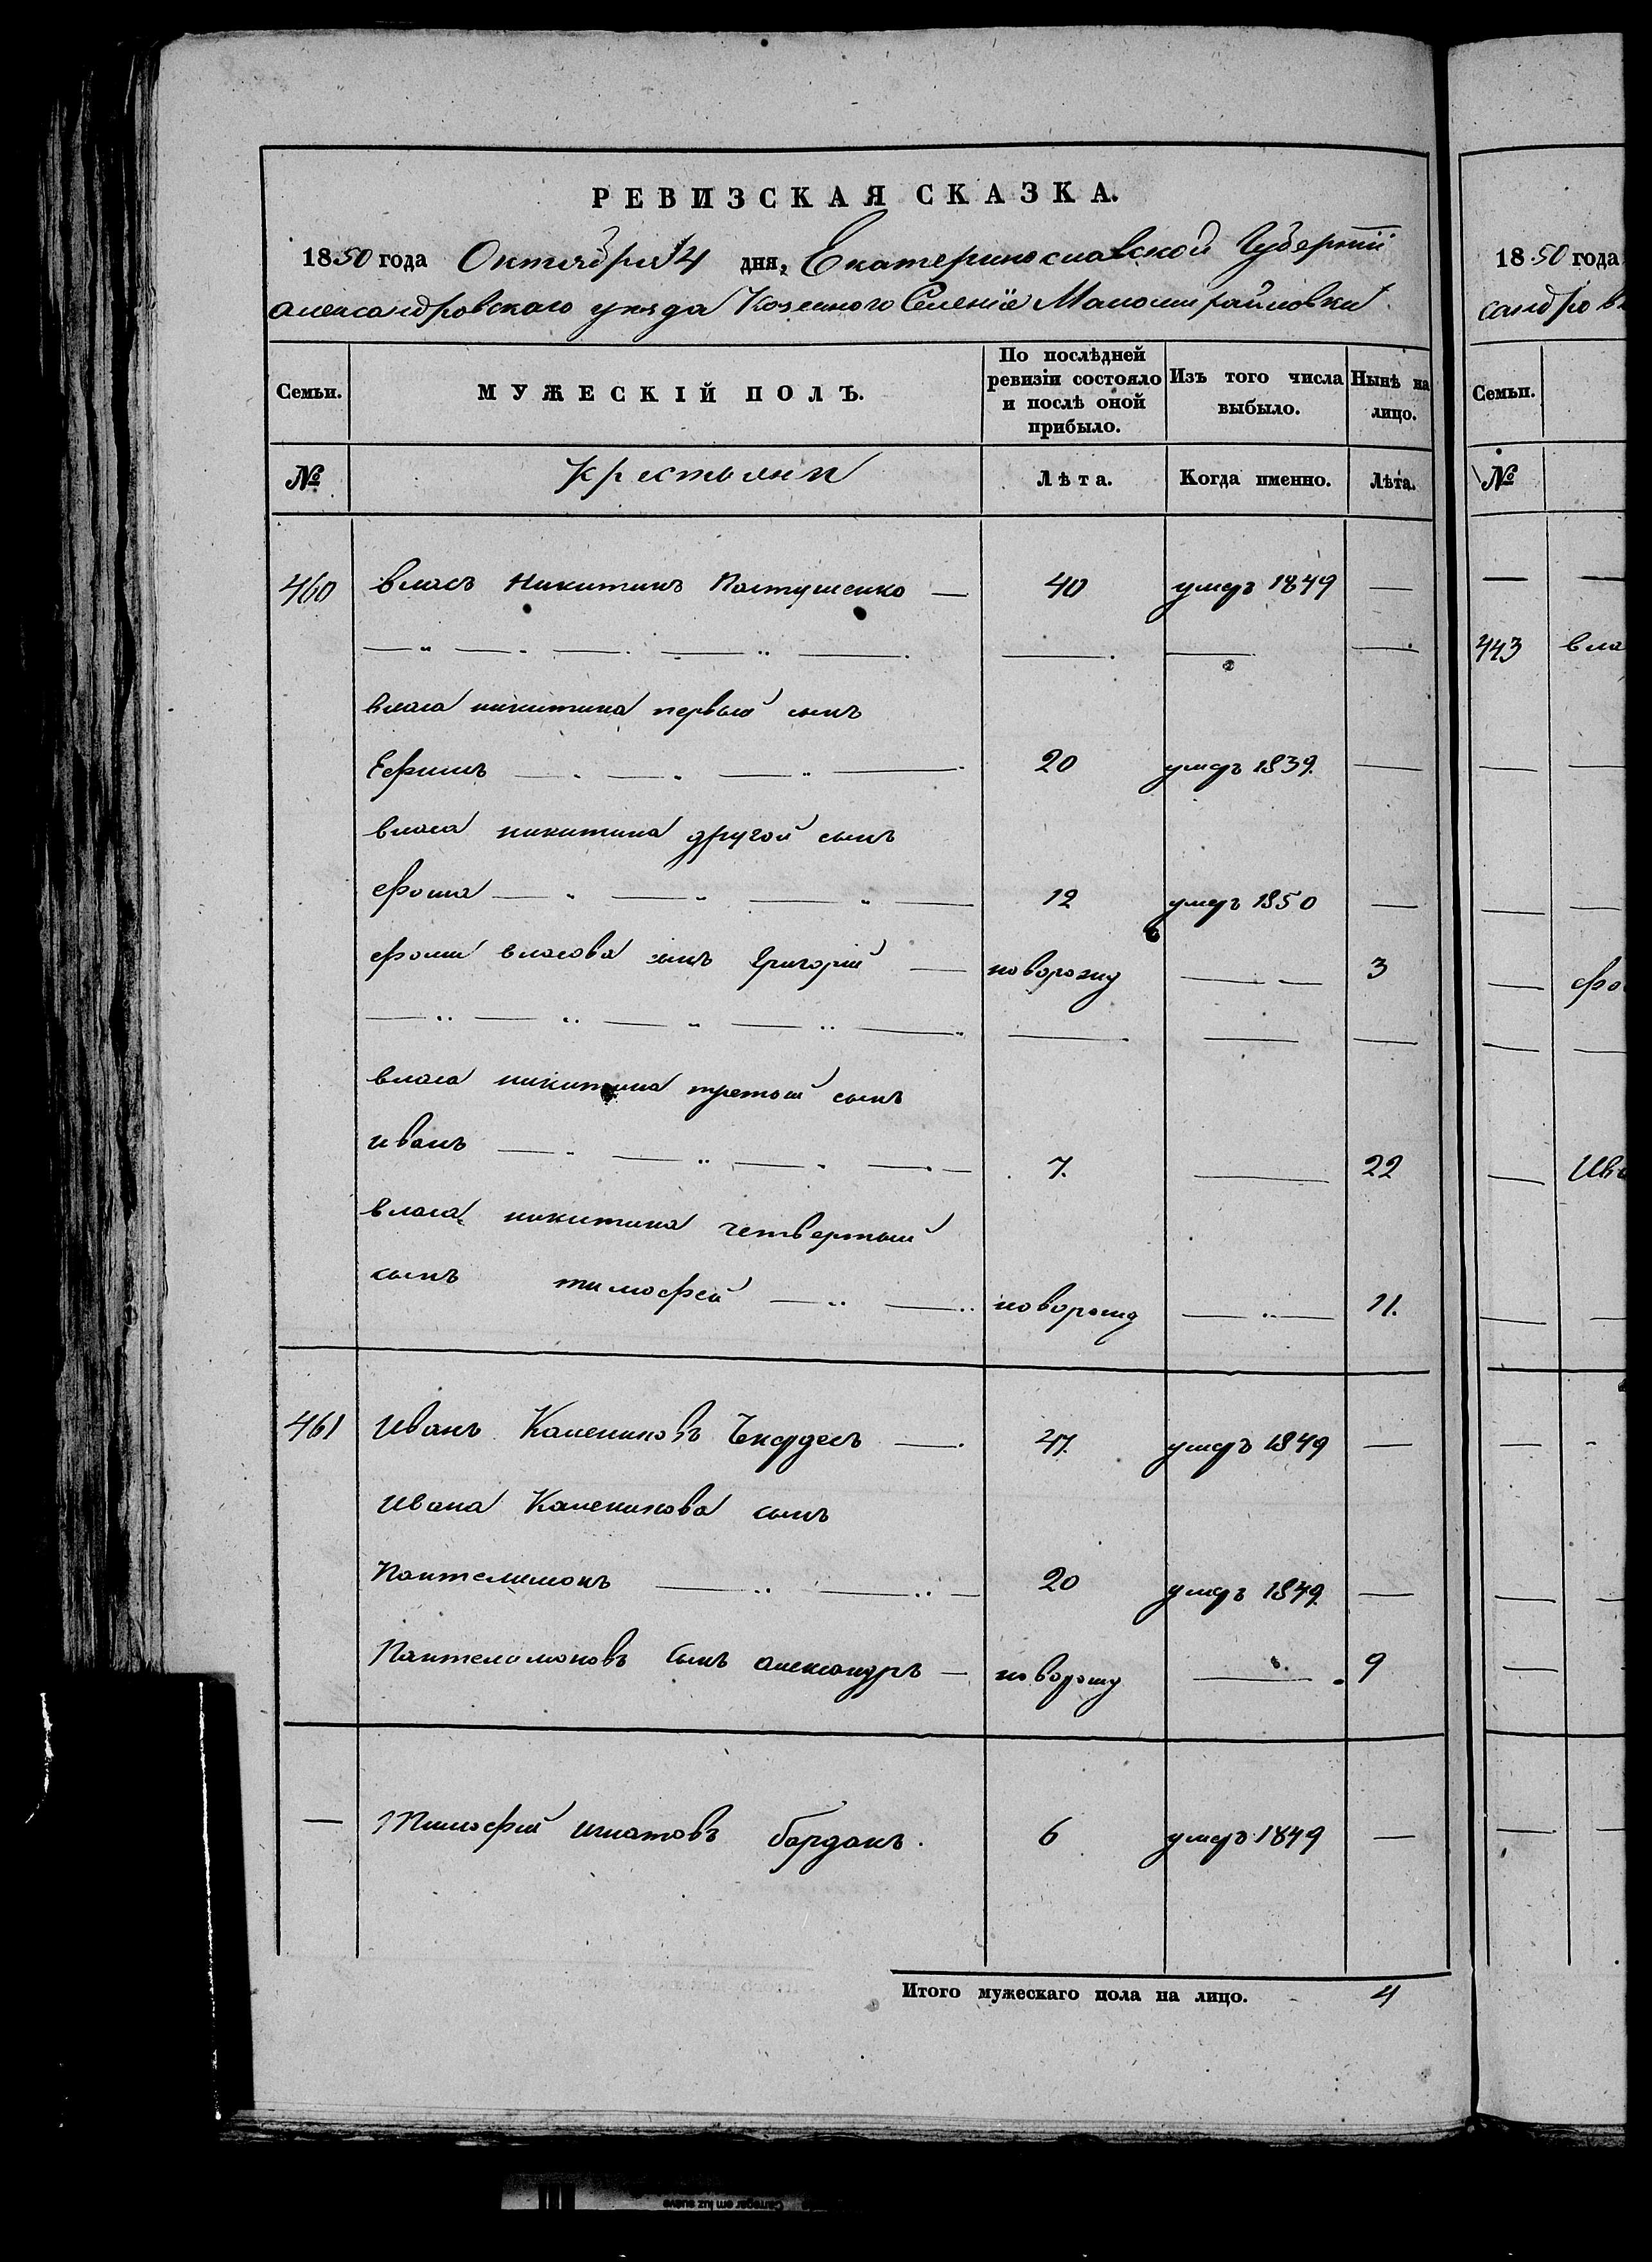 РЕВИЗСКАЯ СКАЗКА.
1850 года Октября 14 дня, Екатеринославской Губернии
александровского уезда Казенного Селение Маломихайловки
Семьи. МУЖЕСКІЙ ПОЛЪ. По послѣдней ревизіи состояло и послѣ оной прибыло. Изъ того числа выбыло. Нынѣ на лицо.
№ крестьяни Лѣта. Когда именно. Лѣта.
460 власъ Никитинъ Пастушенко — 40 умеръ 1849 —
власа никитина первый сынъ
Ефимъ 20 умеръ 1839. —
власа никитина другой сынъ
фома 12 умеръ 1850 —
фоми власова сынъ Григорий — новорожд — 3
власа никитина третий сынъ
иванъ 7. — 22
власа никитина четвертый
сынъ тимофей новорожд — 11.
461 Иванъ Калениковъ 47. умеръ 1849 —
Ивана Каленикова сынъ
Пантелимонъ 20 умеръ 1849. —
Пантелимоновъ сынъ александръ — новорожд — 9
— Тимофей Игнатовъ бардакъ. 6 умеръ 1849 —
Итого мужескаго пола на лицо. 4
1850 года
сандровс
Семьи.
№
443 вла
фо
Ив